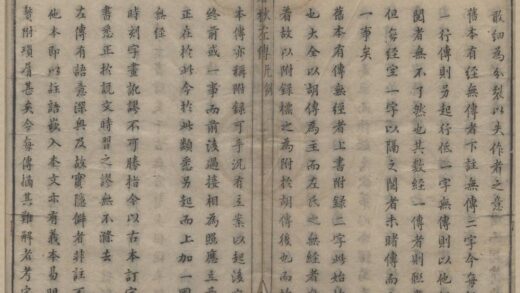 敢細為分裂以失作者之意
舊本有經無傳者下註無傳二字今每
一行傳則另起行低一字無傳則以他
閱者無不了然也其數經一傳者則照
但每經空一字以隔之閱者未睹傳而
一事矣
舊本有傳無經者上書附錄二字此始
也大全以胡傳為主而左氏之無經者
著故以附錄標之為附於胡傳後也而
秋左傳凡例
本傳亦稱附錄可乎況有立案以起後
終前或一事而前後過接相為照應立
正在於此今於此類悉另起而上加一
無經
時刻字畫訛謬不可勝指今以古本訂
書悉正於說文時習之謬無不滌去
左傳有語意深奧及故實隱僻者非註不
他本即以註語嵌入本文亦有義本易明
贅附瑣屑甚矣今每傳摘其難解者考